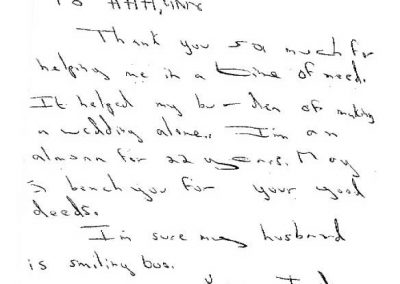 To
Thank you so much for
helping me in a time of need.
It helped my burden of making
a wedding alone.. I'm an
almana for 22 years. May
ה bench you for your good
deeds.
I'm sure my husband
is smiling